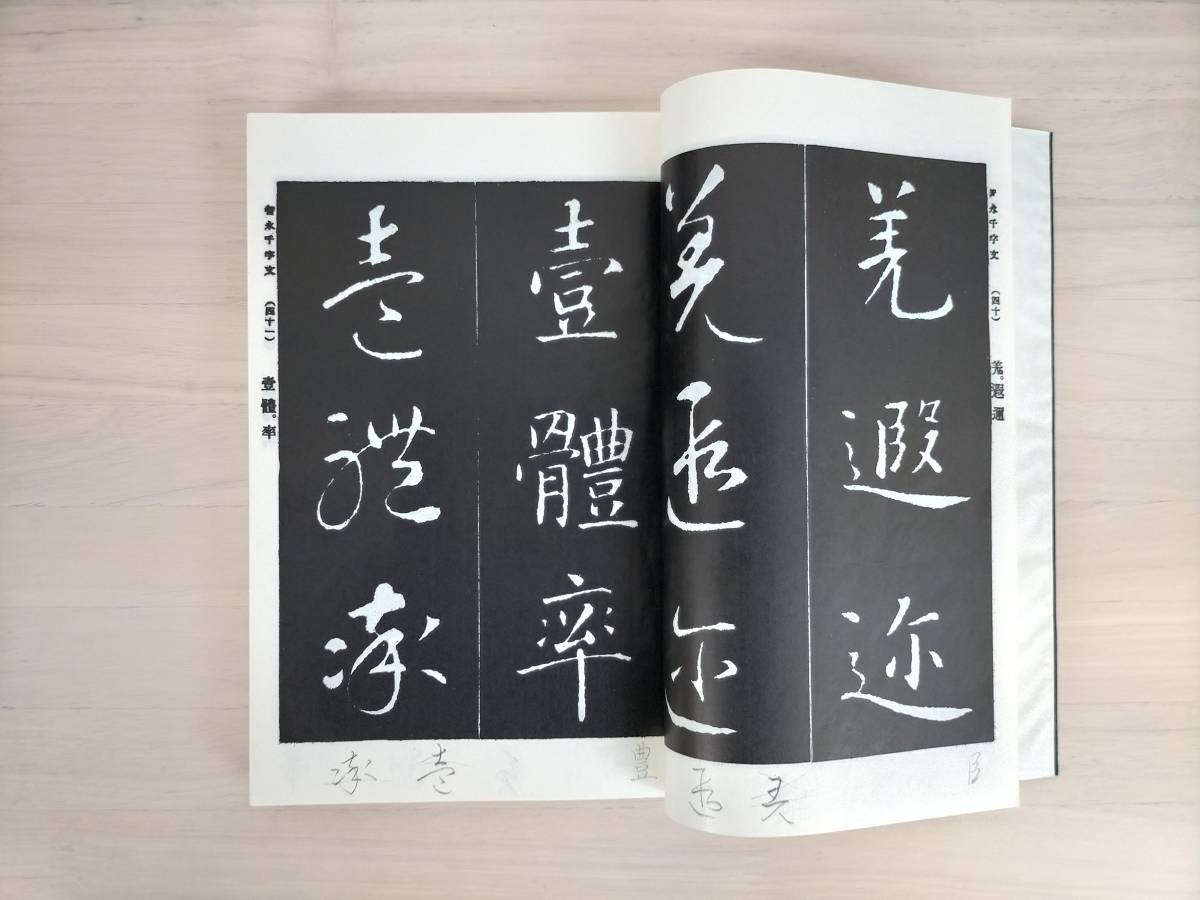 智永千字文 (四十) 羌。遐邇
羌遐迩
羌遐迩
壹體率
壹體率
智永千字文 (四十一) 壹體。率
羌
遐
豊
壹
率